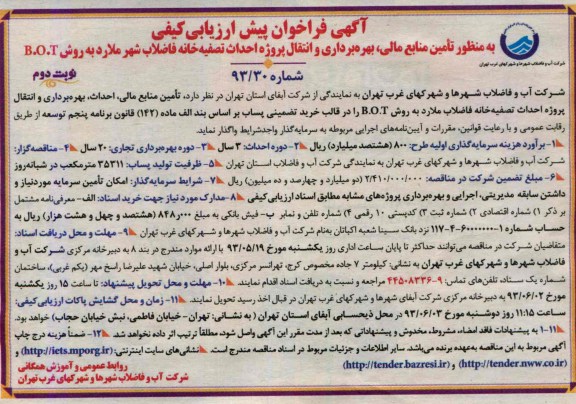 آگهی فراخوان پیش ارزیابی کیفی
به منظور تأمین منابع مالی، بهره‌برداری و انتقال پروژه احداث تصفیه‌خانه فاضلاب شهر ملارد به روش B.O.T
شماره ۹۳/۳۰
نوبت دوم
شرکت آب و فاضلاب شهرها و شهرکهای غرب تهران
شرکت آب و فاضلاب شهرها و شهرکهای غرب تهران به نمایندگی از شرکت آبفای استان تهران در نظر دارد، تأمین منابع مالی، احداث، بهره‌برداری و انتقال
پروژه احداث تصفیه‌خانه فاضلاب ملارد به روش B.O.T را در قالب خرید تضمینی پساب بر اساس بند الف ماده (۱۴۲) قانون برنامه پنجم توسعه از طریق
رقابت عمومی و با رعایت قوانین، مقررات و آیین‌نامه‌های اجرایی مربوطه به سرمایه‌گذار واجدشرایط واگذار نماید.
۱- برآورد هزینه سرمایه‌گذاری اولیه طرح: ۸۰۰ (هشتصد میلیارد) ریال ۲- دوره احداث: ۳ سال ۳- دوره بهره‌برداری تجاری: ۲۰ سال ۴- مناقصه‌گزار:
شرکت آب و فاضلاب شهرها و شهرکهای غرب تهران به نمایندگی شرکت آب و فاضلاب استان تهران ۵- ظرفیت تولید پساب: ۳۵۳۱۱ مترمکعب در شبانه‌روز
۶- مبلغ تضمین شرکت در مناقصه: ۲/۴۱۰/۰۰۰/۰۰۰ (دو میلیارد و چهارصد و ده میلیون) ریال ۷- شرایط سرمایه‌گذار: امکان تأمین سرمایه موردنیاز و
داشتن سابقه مدیریتی، اجرایی و بهره‌برداری پروژه‌های مشابه مطابق اسناد ارزیابی کیفی ۸- مدارک مورد نیاز جهت خرید اسناد: الف- معرفی‌نامه مشتمل
بر ذکر ۱) شماره اقتصادی ۲) شماره ثبت ۳) کدپستی ۱۰ رقمی ۴) شماره تلفن و نمابر ب- فیش بانکی به مبلغ ۸۴۸/۰۰۰ (هشتصد و چهل و هشت هزار) ریال به
حساب شماره ۱-۶۰۰۰۰۰۰-۴-۱۱۷ نزد بانک سینا شعبه اکباتان به‌نام شرکت آب و فاضلاب شهرها و شهرکهای غرب تهران ۹- مهلت و محل دریافت اسناد:
متقاضیان شرکت در مناقصه می‌توانند حداکثر تا پایان ساعت اداری روز یکشنبه مورخ ۹۳/۰۵/۱۹ با ارائه موارد مندرج در بند ۸ به دبیرخانه مرکزی شرکت آب و
فاضلاب شهرها و شهرکهای غرب تهران به نشانی: کیلومتر ۷ جاده مخصوص کرج، تهرانسر مرکزی، بلوار اصلی، خیابان شهید علیرضا راسخ مهر (یکم غربی)، ساختمان
شماره یک ستاد، تلفن‌های تماس: ۹-۴۴۵۰۸۳۳۶ مراجعه و نسبت به دریافت اسناد اقدام نمایند. ۱۰- مهلت و محل تحویل پیشنهاد: تا ساعت ۱۵ روز یکشنبه
مورخ ۹۳/۰۶/۰۲ به دبیرخانه مرکزی شرکت آبفای شهرها و شهرکهای غرب تهران در قبال اخذ رسید تحویل نمایند. ۱۱- زمان و محل گشایش پاکات ارزیابی کیفی:
ساعت ۱۱:۱۵ روز دوشنبه مورخ ۹۳/۰۶/۰۳ در محل ذیحسابی آبفای استان تهران (به نشانی: تهران- خیابان فاطمی، نبش خیابان حجاب) خواهد بود.
۱-۱۱ به پیشنهادات فاقد امضاء، مشروط، مخدوش و پیشنهاداتی که بعد از مدت مقرر این آگهی واصل شود، مطلقاً ترتیب اثر داده نخواهد شد. ۱۲- ضمناً هزینه درج چاپ
آگهی مربوط به این مناقصه به‌عهده برنده می‌باشد. سایر اطلاعات و جزئیات مربوط در اسناد مناقصه مندرج است. نشانی‌های سایت اینترنتی: (http://iets.mporg.ir) و
(http://tender.nww.co.ir) و (http://tender.bazresi.ir)
روابط عمومی و آموزش همگانی
شرکت آب و فاضلاب شهرها و شهرکهای غرب تهران